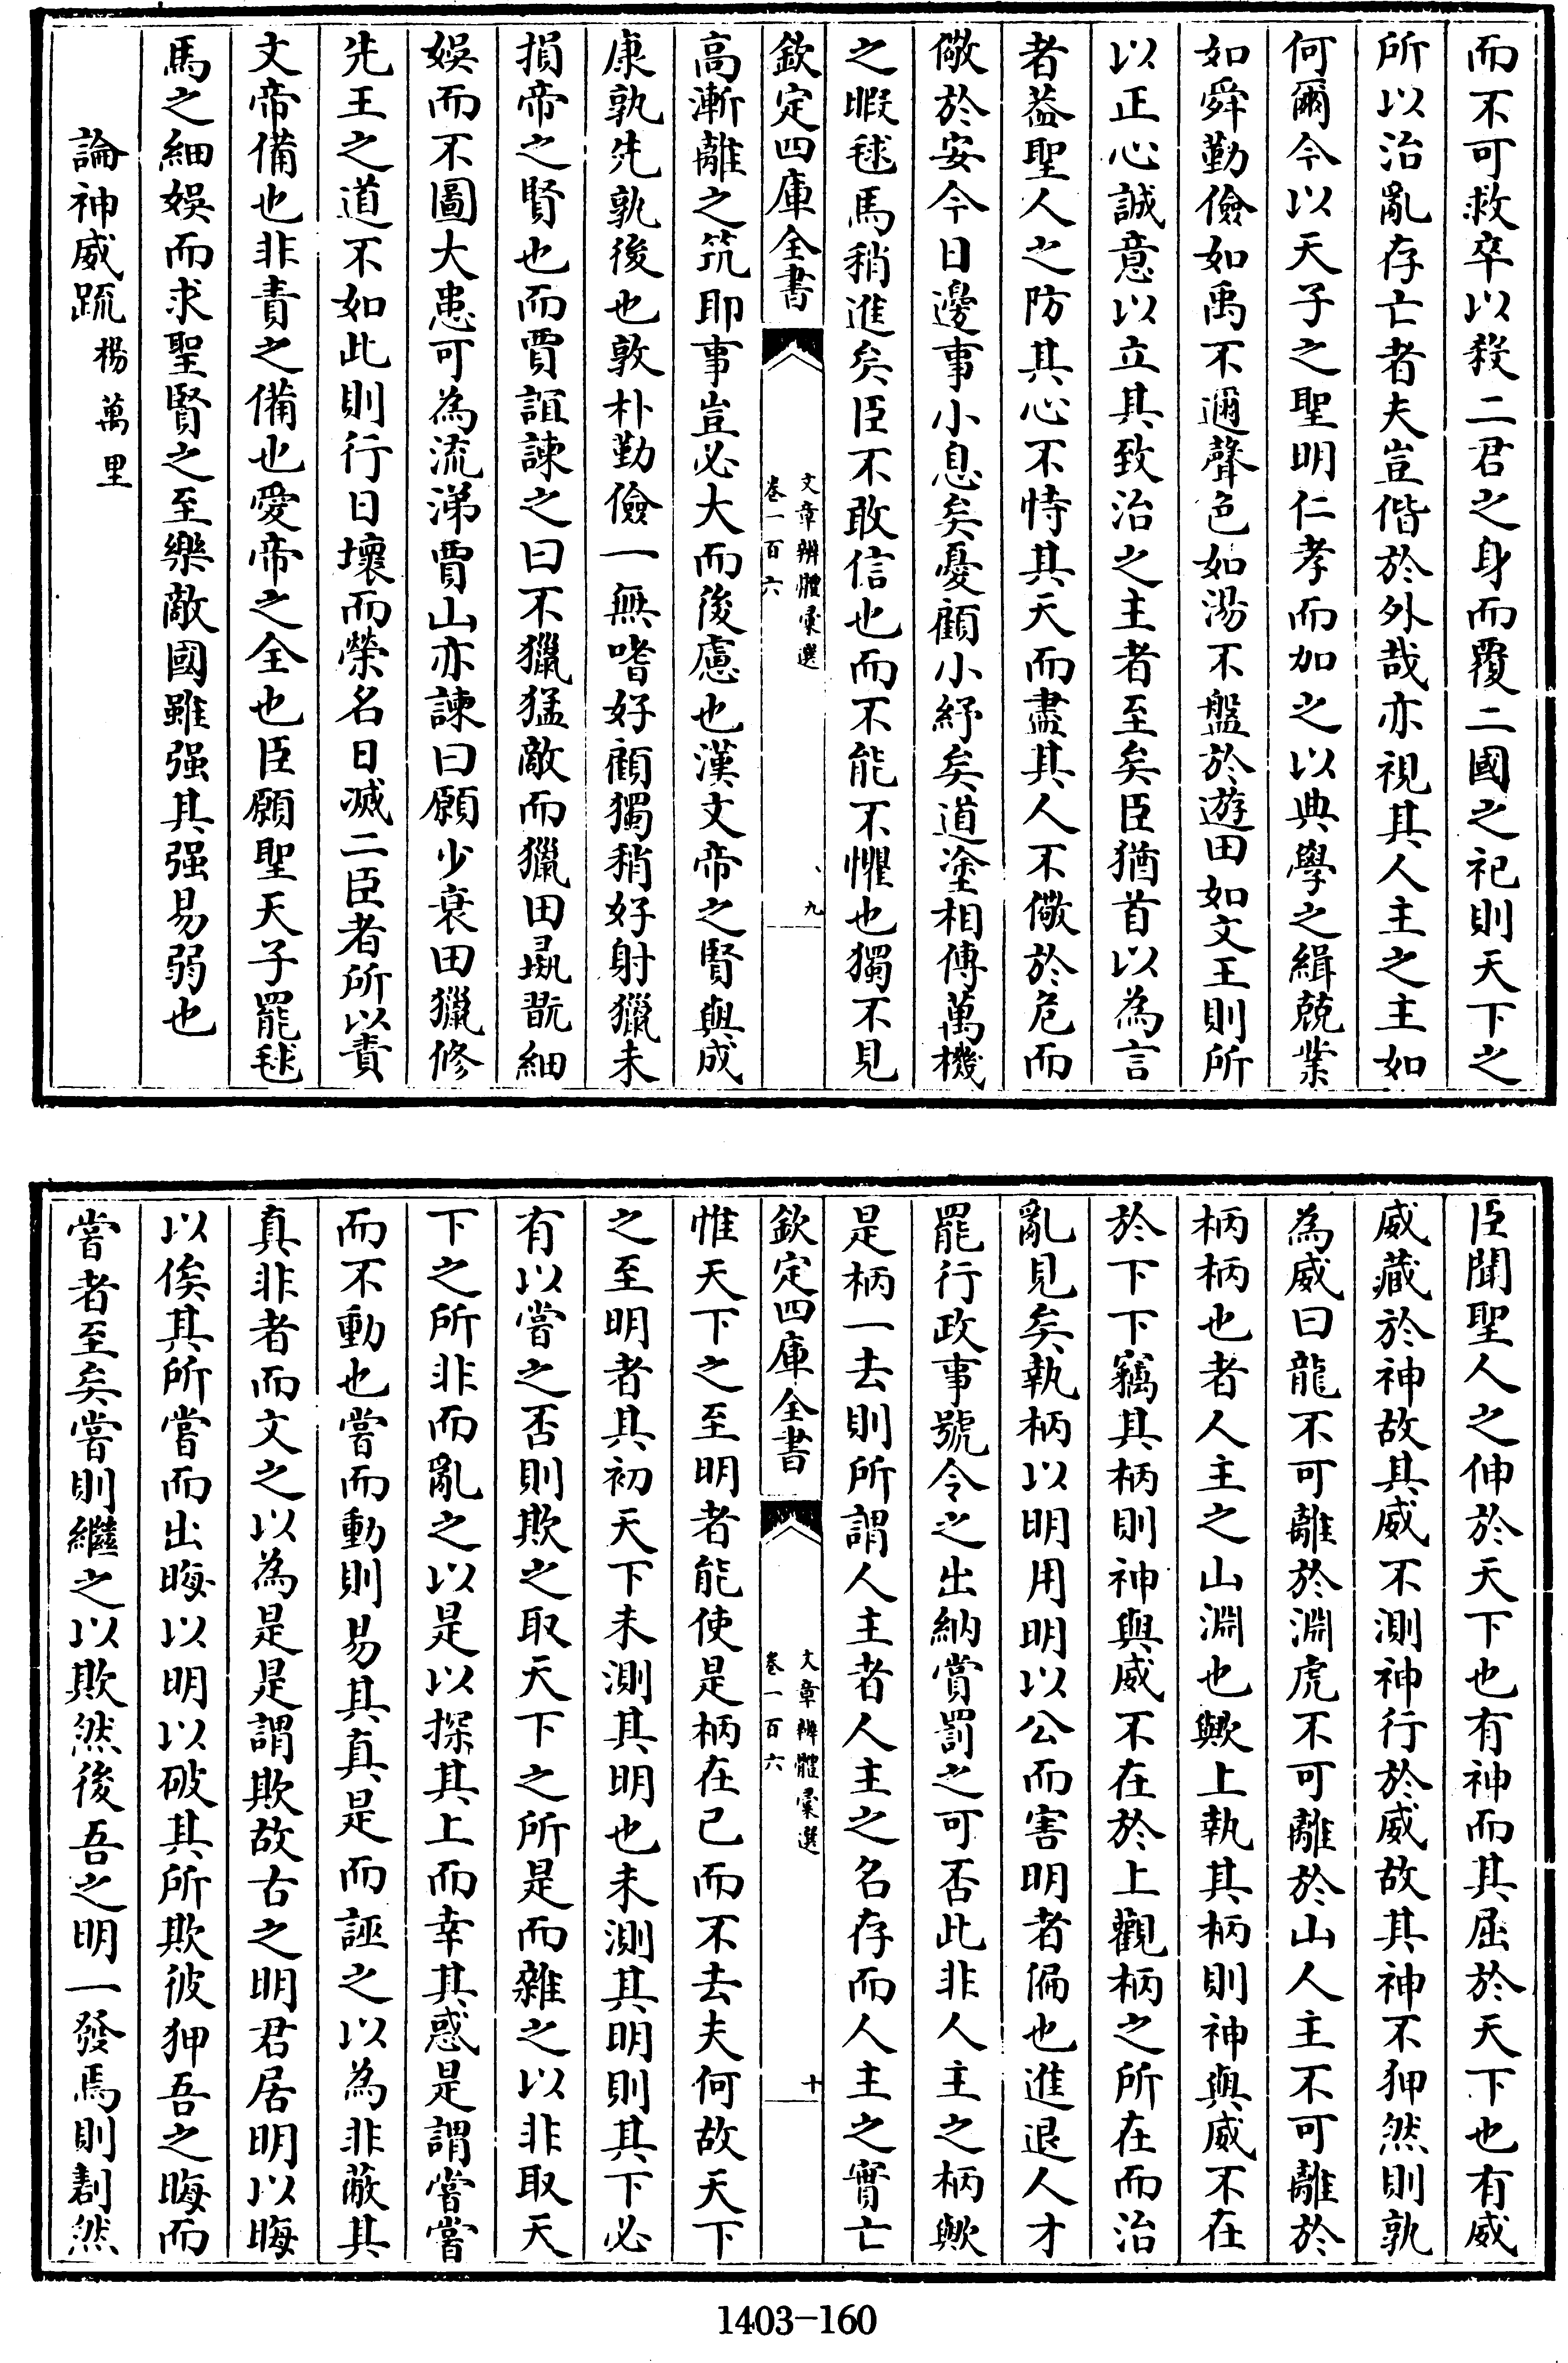 而不可救卒以殺二君之身而覆二國之祀則天下之
所以治亂存亡者夫豈偕於外哉亦視其人主之主如
何爾今以天子之聖明仁孝而加之以典學之緝兢業
如舜勤儉如禹不邇聲色如湯不盤於遊田如文王則所
以正心誠意以立其致治之主者至矣臣猶首以為言
者葢聖人之防其心不恃其天而盡其人不儆於危而
儆於安今日邊事小息矣憂顧小紓矣道塗相傳萬機
之暇毬馬稍進矣臣不敢信也而不能不懼也獨不見
欽定四庫全書
文章辨體彙選
卷一百六
九
高漸離之筑即事豈必大而後慮也漢文帝之賢與成
康孰先孰後也敦朴勤儉一無嗜好顧獨稍好射獵未
損帝之賢也而賈誼諫之曰不獵猛敵而獵田彘翫細
娛而不圖大患可為流涕賈山亦諫曰願少衰田獵修
先王之道不如此則行日壞而榮名日滅二臣者所以責
文帝備也非責之備也愛帝之全也臣願聖天子罷毬
馬之細娛而求聖賢之至樂敵國雖强其强易弱也
論神威䟽楊萬里
臣聞聖人之伸於天下也有神而其屈於天下也有威
威藏於神故其威不測神行於威故其神不狎然則孰
為威曰龍不可離於淵虎不可離於山人主不可離於
柄柄也者人主之山淵也歟上執其柄則神與威不在
於下下竊其柄則神與威不在於上觀柄之所在而治
亂見矣執柄以明用明以公而害明者偏也進退人才
罷行政事號令之出納賞罰之可否此非人主之柄歟
是柄一去則所謂人主者人主之名存而人主之實亡
欽定四庫全書
文章辨體彙選
卷一百六
十
惟天下之至明者能使是柄在已而不去夫何故天下
之至明者其初天下未測其明也未測其明則其下必
有以嘗之否則欺之取天下之所是而雜之以非取天
下之所非而亂之以是以探其上而幸其惑是謂嘗嘗
而不動也嘗而動則易其真是而誣之以為非蔽其
真非者而文之以為是是謂欺故古之明君居明以晦
以俟其所嘗而出晦以明以破其所欺彼狎吾之晦而
嘗者至矣嘗則繼之以欺然後吾之明一發焉則劃然
1403-160